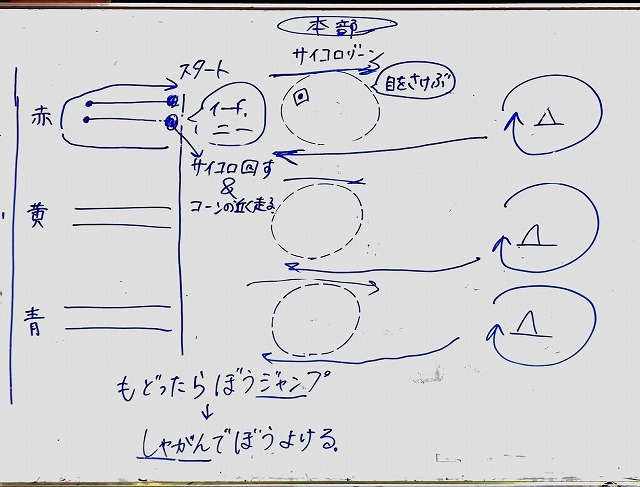 本部
スタート
サイコロゾーン
目をさけぶ
赤
イーf.
ニー
サイコロ回す
&
コーンの近く走る
黄
青
もどったらぼうジャンプ
しゃがんでぼうよける.